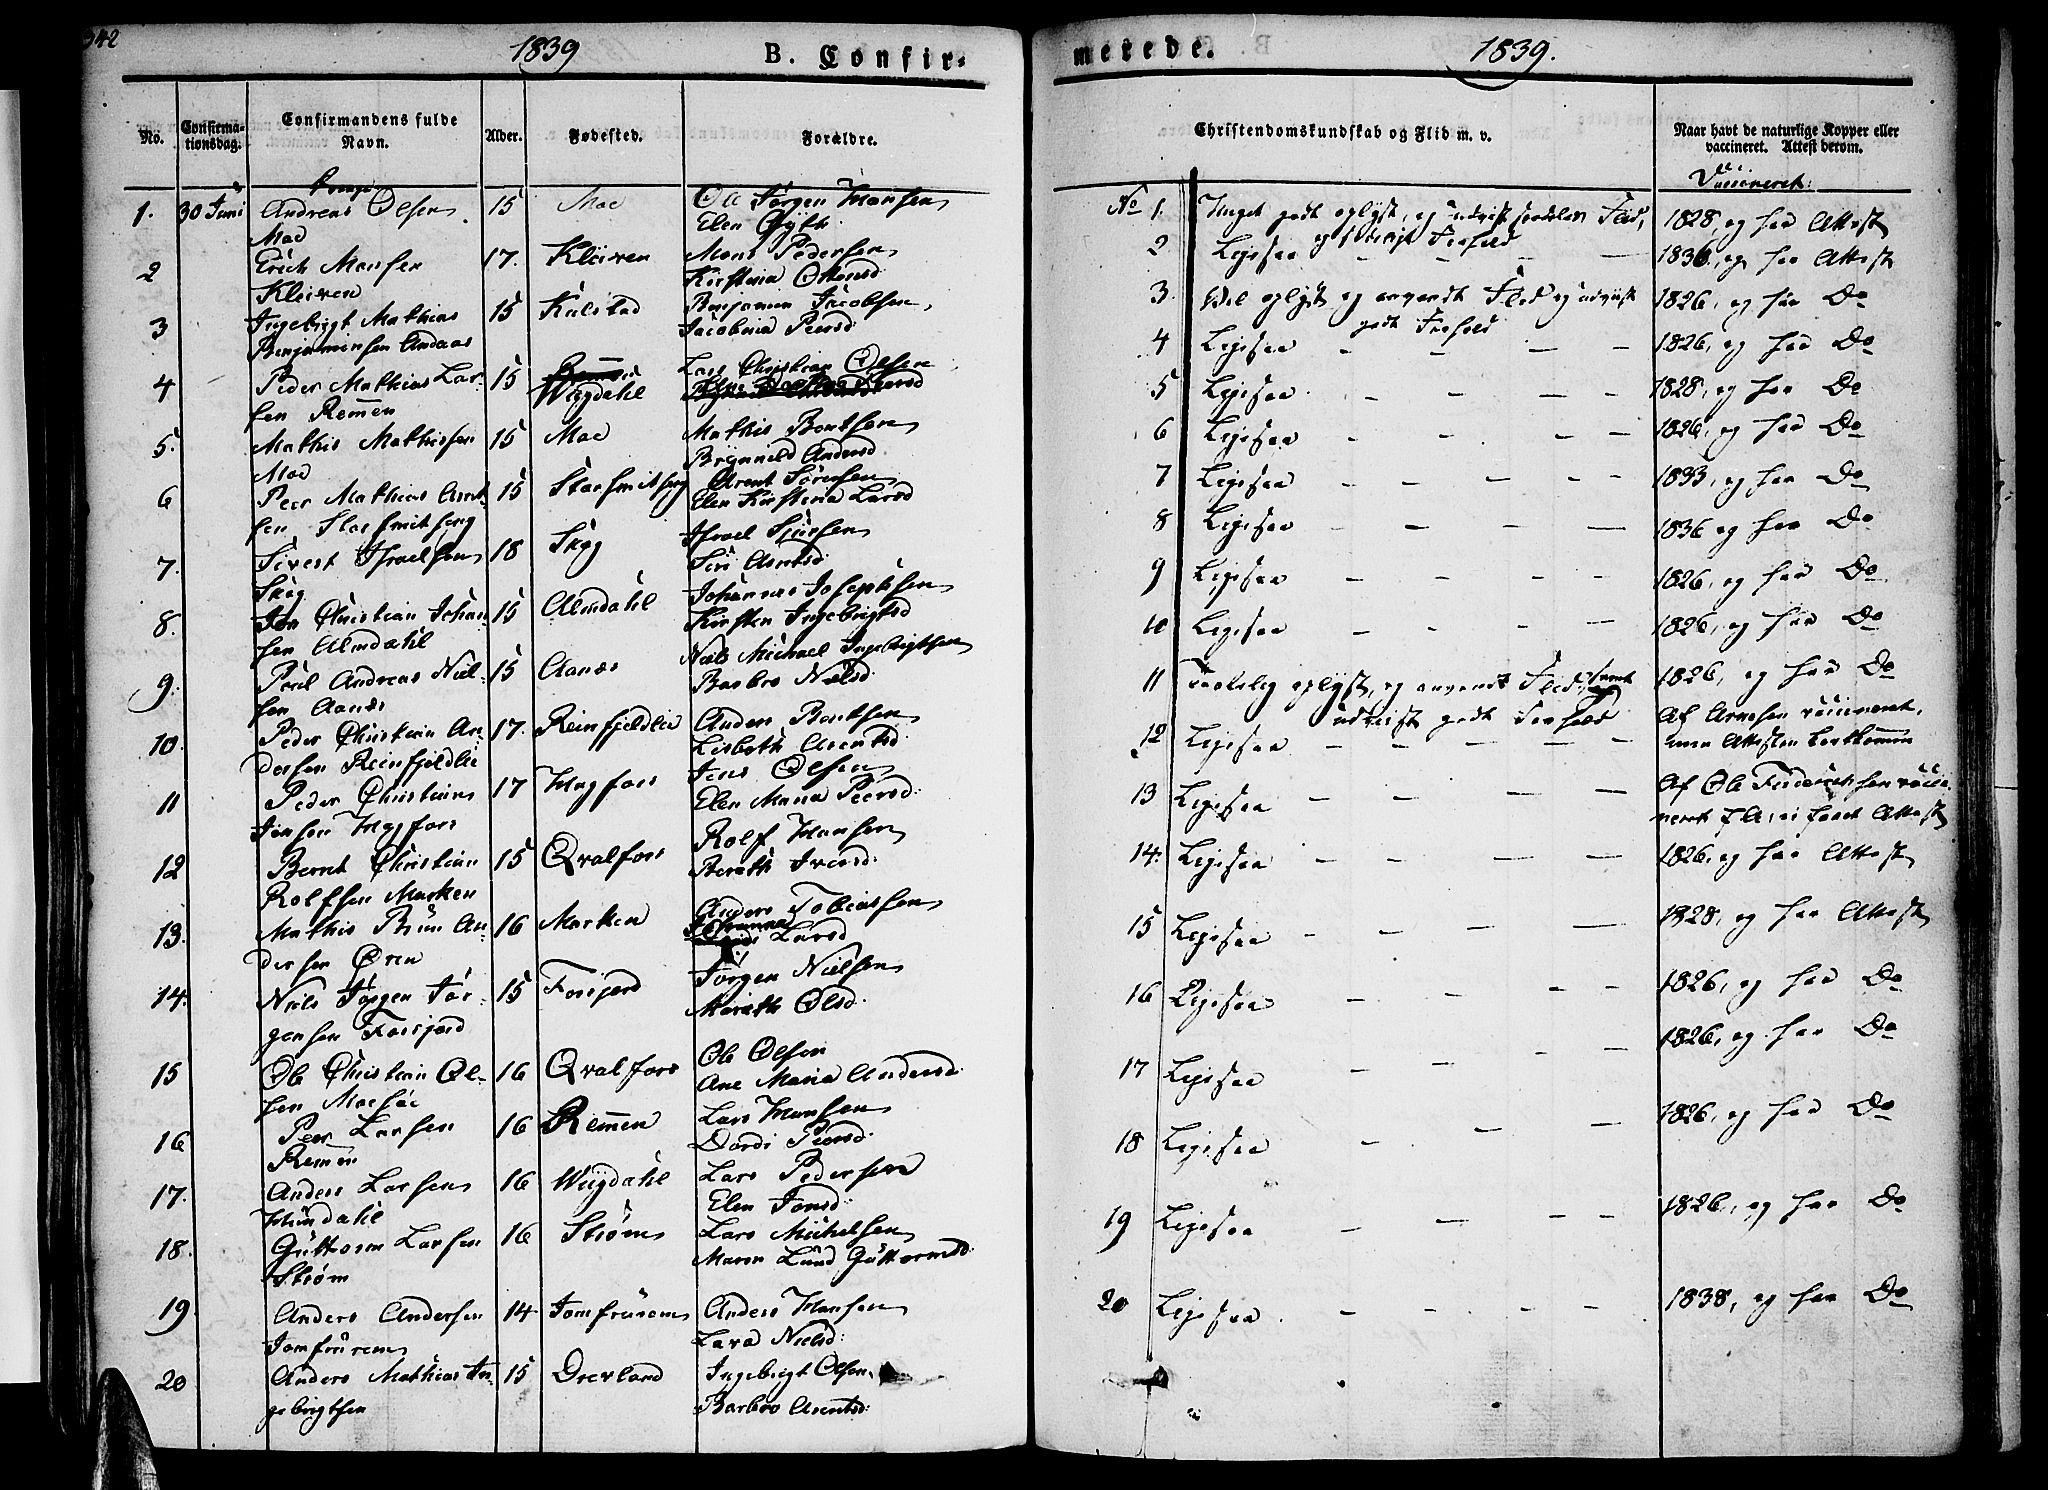 342
1839
B. Confir-
No.
Confirma-
tionsdag.
Confirmandens fulde
Navn.
Alder.
Fødested.
Forældre.
Drenge
1. 30 Juni Andreas Olsen 15 Moe Ole Jørgen Hansen
Moe Elen
2 Erich Monsen 17. Kleiven Mons Pedersen
Kleiven Kirstina Ottersd
3 Ingebrigt Mathias 15 Kulstad Benjamin Jacobsen
Benjaminsen Andaas Jacobina Peersd
4 Peder Mathias Lar- 15 Weigdahl Lars Christian Olsen
sen Remmen
5. Mathis Mathissen 15 Moe Mathis Bentsen
Moe Brynnild Andersd
6 Peer Mathias Arnt- 15 Arent Sörensen
sen Elen Kirstina Larsd
7. Sivert Israelsen 18 Skog Israel Sjursen
Skog Siri Arntsd
8. Jon Christian Johan- 15 Almdahl Johannes Josephsen
sen Almdahl Kirsten Ingebrigtsd
9. Poul Andreas Niel- 15 Aanes Niels Michael Ingebrigtsen
sen Aanes Barbro Nielsd
10. Peder Christian An- 17. Reinfjeldlie Anders Bentsen
dersen Reinfjeldlie Lisbeth Arentsd
11 Peder Christian 17 Hagfors Jens Olsen
Jensen Hagfors Elen Maria Peersd:
12 Bernt Christian 15 Qvalfors Rolf Hansen
Rolfsen Marken Berith Iversd:
13. Mathis Bruun An- 16 Marken Anders Tobiassen
dersen Øren Johanna Larsd
14. Niels Jörgen Jör- 15 Forsjord Jörgen Nielsen
gensen Forsjord Marith Olsd:
15 Ole Christian Ol- 16 Qvalfors Ole Olsen
sen Ane Maria Andersd:
16 Peer Larsen 16 Remmen Lars Hansen
Remmen Dordi Peersd:
17. Anders Larsen 16 Weigdahl Lars Pedersen
Elen Jonsd:
18. Guttorm Larsen 16 Strøm Lars Michelsen
Strøm Maren Lund Guttormsd:
19 Anders Andersen 14 Jomfrurem Anders Hansen
Jomfrurem Lava Nielsd:
20 Anders Mathias In- 15 Drevland Ingebrigt Olsen
gebrigtsen Barbro Arentsd:
merede.
1839.
Christendomskundskab og Flid m. v.
Naar havt de naturlige Kopper eller
vaccineret. Attest derom.
Vaccineret:
No 1. Meget godt oplyst, og udviist Flid, 1828, og har Attest
og Forhold
2 Ligesaa — — — — 1836, og har Attest
3. Vel oplyst og anvendt Flid og udviist 1826, og har Do
godt Forhold
4 Ligesaa — — — — 1826, og har Do
5 Ligesaa — — — — 1828, og har Do
6 Ligesaa — — — — 1826, og har Do
7 Ligesaa — — — — 1833, og har Do
8 Ligesaa — — — — 1836 og har Do
9 Ligesaa — — — — 1826, og har Do
10 Ligesaa — — — — 1826, og har Do
11 Taalelig oplyst, og anvendt Flid, samt 1826, og har Do
udviist godt Forhold
12 Ligesaa — — — — Af Arnesen vaccineret,
men Attesten bortkommen
13 Ligesaa — — — — Af Ole Fredericksen vacci-
neret
14. Ligesaa — — — — 1826, og har Attest
15 Ligesaa — — — — 1828, og har Attest
16 Ligesaa — — — — 1826, og har Do
17 Ligesaa — — — 1826, og har Do
18 Ligesaa — — — 1826, og har Do
19 Ligesaa — — — — 1826, og har Do
20 Ligesaa — — — — 1838, og har Do